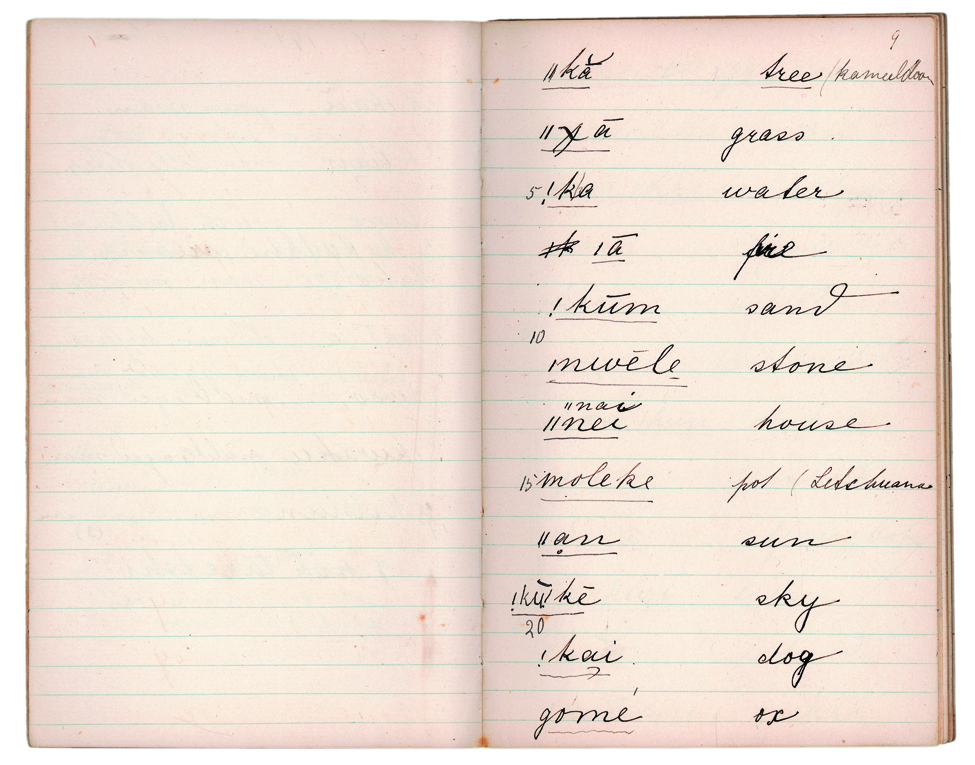 9
ǁkā̆ tree (kameeldoorn
ǁχā grass.
5 !ka water
ǀā fire
!kūm sand
10
mwēle stone
ǁnai
ǁnei house
15 moleke pot (Setchuana
ǁan sun
!kŭkē sky
20
!kai dog
gomé ox